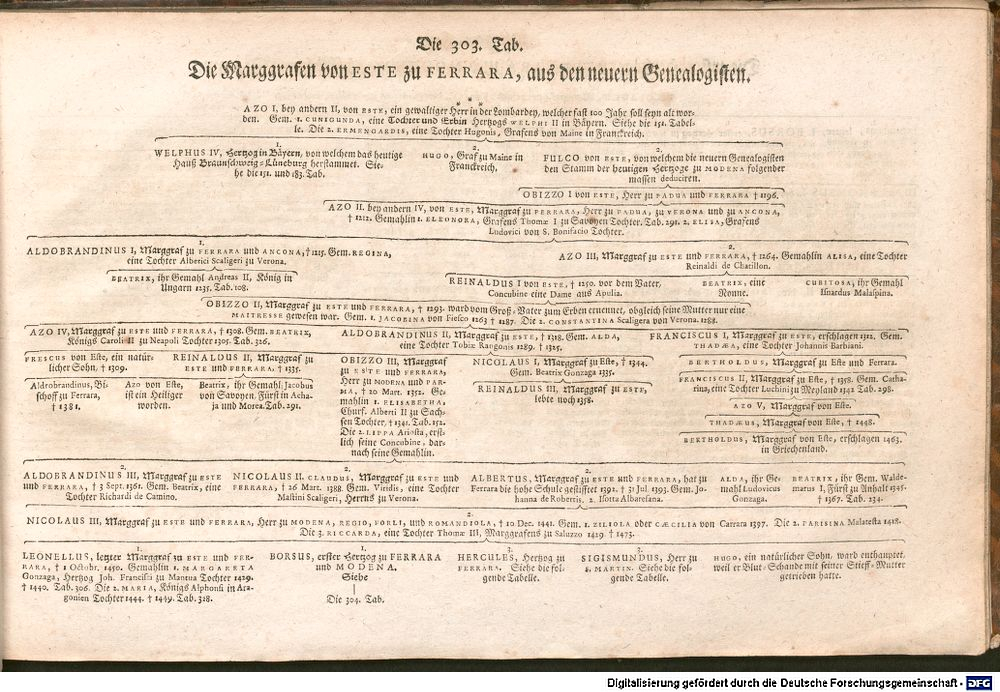 Die 303. Tab.
Die Marggrafen von ESTE zu FERRARA, aus den neuern Genealogisten.
AZO I, bey andern II, von ESTE, ein gewaltiger Herr in der Lombardey, welcher fast 100 Jahr soll seyn alt wor-
den. Gem. 1. CUNIGUNDA, eine Tochter und Erbin Hertzogs WELPHI II in Bäyern. Siehe die 151. Tabel-
le. Die 2. ERMENGARDIS, eine Tochter Hugonis, Grafens von Maine in Franckreich.
1.
WELPHUS IV, Hertzog in Bäyern, von welchem das heutige
Hauß Braunschweig-Lüneburg herstammet. Sie-
he die 151. und 183. Tab.
2.
HUGO, Graf zu Maine in
Franckreich.
2.
FULCO von ESTE, von welchem die neuern Genealogisten
den Stamm der heutigen Hertzoge zu MODENA folgender
massen deduciren.
OBIZZO I von ESTE, Herr zu PADUA und FERRARA † 1196.
AZO II. bey andern IV, von ESTE, Marggraf zu FERRARA, Herr zu PADUA, zu VERONA und zu ANCONA,
† 1212. Gemahlin 1. ELEONORA, Grafens Thomæ I zu Savoyen Tochter. Tab. 291. 2. ELISA, Grafens
Ludovici von S. Bonifacio Tochter.
1.
ALDOBRANDINUS I, Marggraf zu FERRARA und ANCONA, † 1215. Gem. REGINA,
eine Tochter Alberici Scaligeri zu Verona.
2.
AZO III, Marggraf zu ESTE und FERRARA, † 1264. Gemahlin ALISA, eine Tochter
Reinaldi de Chatillon.
BEATRIX, ihr Gemahl Andreas II, König in
Ungarn 1235. Tab. 108.
REINALDUS I von ESTE, † 1250. vor dem Vater,
Concubine eine Dame aus Apulia.
BEATRIX, eine
Nonne.
CUBITOSA, ihr Gemahl
Isnardus Malaspina.
OBIZZO II, Marggraf zu ESTE und FERRARA, † 1293. ward vom Groß-Vater zum Erben ernennet, obgleich seine Mutter nur eine
MAITRESSE gewesen war. Gem. 1. JACOBINA von Fiesco 1263 † 1287. Die 2. CONSTANTINA Scaligera von Verona. 1288.
AZO IV, Marggraf zu ESTE und FERRARA, † 1308. Gem. BEATRIX,
Königs Caroli II zu Neapoli Tochter 1305. Tab. 326.
ALDOBRANDINUS II, Marggraf zu ESTE, † 1318. Gem. ALDA,
eine Tochter Tobiæ Rangonis 1289. † 1325.
FRANCISCUS I, Marggraf zu ESTE, erschlagen 1312. Gem.
THADÆA, eine Tochter Johannis Barbiani.
FRESCUS von Este, ein natür-
licher Sohn, † 1309.
REINALDUS II, Marggraf zu
ESTE und FERRARA, † 1335.
OBIZZO III, Marggraf
zu ESTE und FERRARA,
Herr zu MODENA und PAR-
MA, † 20 Mart. 1352. Ge-
mahlin 1. ELISABETHA,
Churf. Alberti II zu Sach-
sen Tochter, † 1341. Tab. 152.
Die 2. LIPPA Ariosta, erst-
lich seine Concubine, dar-
nach seine Gemahlin.
NICOLAUS I, Marggraf zu Este, † 1344.
Gem. Beatrix Gonzaga 1335.
BERTHOLDUS, Marggraf zu Este und Ferrara.
Aldrobrandinus, Bi-
schoff zu Ferrara,
† 1381.
Azo von Este,
ist ein Heiliger
worden.
Beatrix, ihr Gemahl Jacobus
von Savoyen, Fürst in Acha-
ja und Morea. Tab. 291.
REINALDUS III, Marggraf zu ESTE,
lebte noch 1358.
FRANCISCUS II, Marggraf zu Este, † 1358. Gem. Catha-
rina, eine Tochter Luchini zu Meyland 1342 Tab. 298.
AZO V, Marggraf von Este.
THADÆUS, Marggraf von Este, † 1448.
BERTHOLDUS, Marggraf von Este, erschlagen 1463.
in Griechenland.
2.
ALDOBRANDINUS III, Marggraf zu ESTE
und FERRARA, † 3 Sept. 1361. Gem. Beatrix, eine
Tochter Richardi de Camino.
2.
NICOLAUS II. CLAUDUS, Marggraf zu ESTE und
FERRARA, † 26 Mart. 1388. Gem. Viridis, eine Tochter
Mastini Scaligeri, Herrns zu Verona.
2.
ALBERTUS, Marggraf zu ESTE und FERRARA, hat zu
Ferrara die hohe Schule gestifftet 1391. † 31 Jul. 1393. Gem. Jo-
hanna de Roberris, 2. Isotta Albaresana.
ALDA, ihr Ge-
mahl Ludovicus
Gonzaga.
BEATRIX, ihr Gem. Walde-
marus I, Fürst zu Anhalt 1345.
† 1367. Tab. 234.
2.
NICOLAUS III, Marggraf zu ESTE und FERRARA, Herr zu MODENA, REGIO, FORLI, und ROMANDIOLA, † 10 Dec. 1441. Gem. 1. ZILIOLA oder CÆCILIA von Carrara 1397. Die 2. PARISINA Malatesta 1418.
Die 3. RICCARDA, eine Tochter Thomæ III, Marggrafens zu Saluzzo 1429 † 1473.
1.
LEONELLUS, letzter Marggraf zu ESTE und FER-
RARA, † 1 Octobr. 1450. Gemahlin 1. MARGARETA
Gonzaga, Hertzog Joh. Francisci zu Mantua Tochter 1429.
† 1440. Tab. 306. Die 2. MARIA, Königs Alphonsi in Ara-
gonien Tochter 1444. † 1449. Tab. 328.
1.
BORSUS, erster Hertzog zu FERRARA
und MODENA.
Siehe
Die 304. Tab.
3.
HERCULES, Hertzog zu
FERRARA. Siehe die fol-
gende Tabelle.
3.
SIGISMUNDUS, Herr zu
S. MARTIN. Siehe die fol-
gende Tabelle.
HUGO, ein natürlicher Sohn, ward enthauptet,
weil er Blut-Schande mit seiner Stieff-Mutter
getrieben hatte.
Digitalisierung gefördert durch die Deutsche Forschungsgemeinschaft - DFG